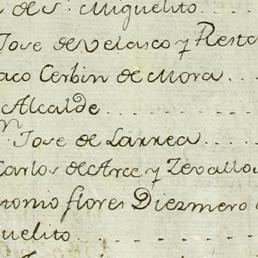 de Sn. Miguelito
Jose de Velasco y Resta
aco Cerbin de Mora
Alcalde
n Jose de Larrea
Carlos de Arce y Zevallo
tonio flores Diezmero
uelito